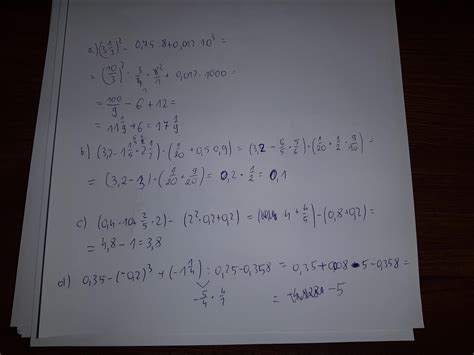 a) (3 1/3)² - 0,75 · 8 + 0,012 · 10³ =
= (10/3)² - 3/4 · 8/1 + 0,012 · 1000 =
= 100/9 - 6 + 12 =
= 11 1/9 + 6 = 17 1/9
b) (3,2 - 1 1/5 · 2 1/2) · (1/20 + 0,5 · 0,9) = (3,2 - 6/5 · 5/2) · (1/20 + 1/2 · 9/10) =
= (3,2 - 3) · (1/20 + 9/20) = 0,2 · 1/2 = 0,1
c) (0,4 · 10 + 2/5 · 2) - (2² · 0,2 + 0,2) = (4 + 4/5) - (0,8 + 0,2) =
= 4,8 - 1 = 3,8
d) 0,35 - (-0,2)³ + (-1 1/4) : 0,25 - 0,358 = 0,35 + 0,008 - 5 - 0,358 =
-5/4 · 4/1
= -5